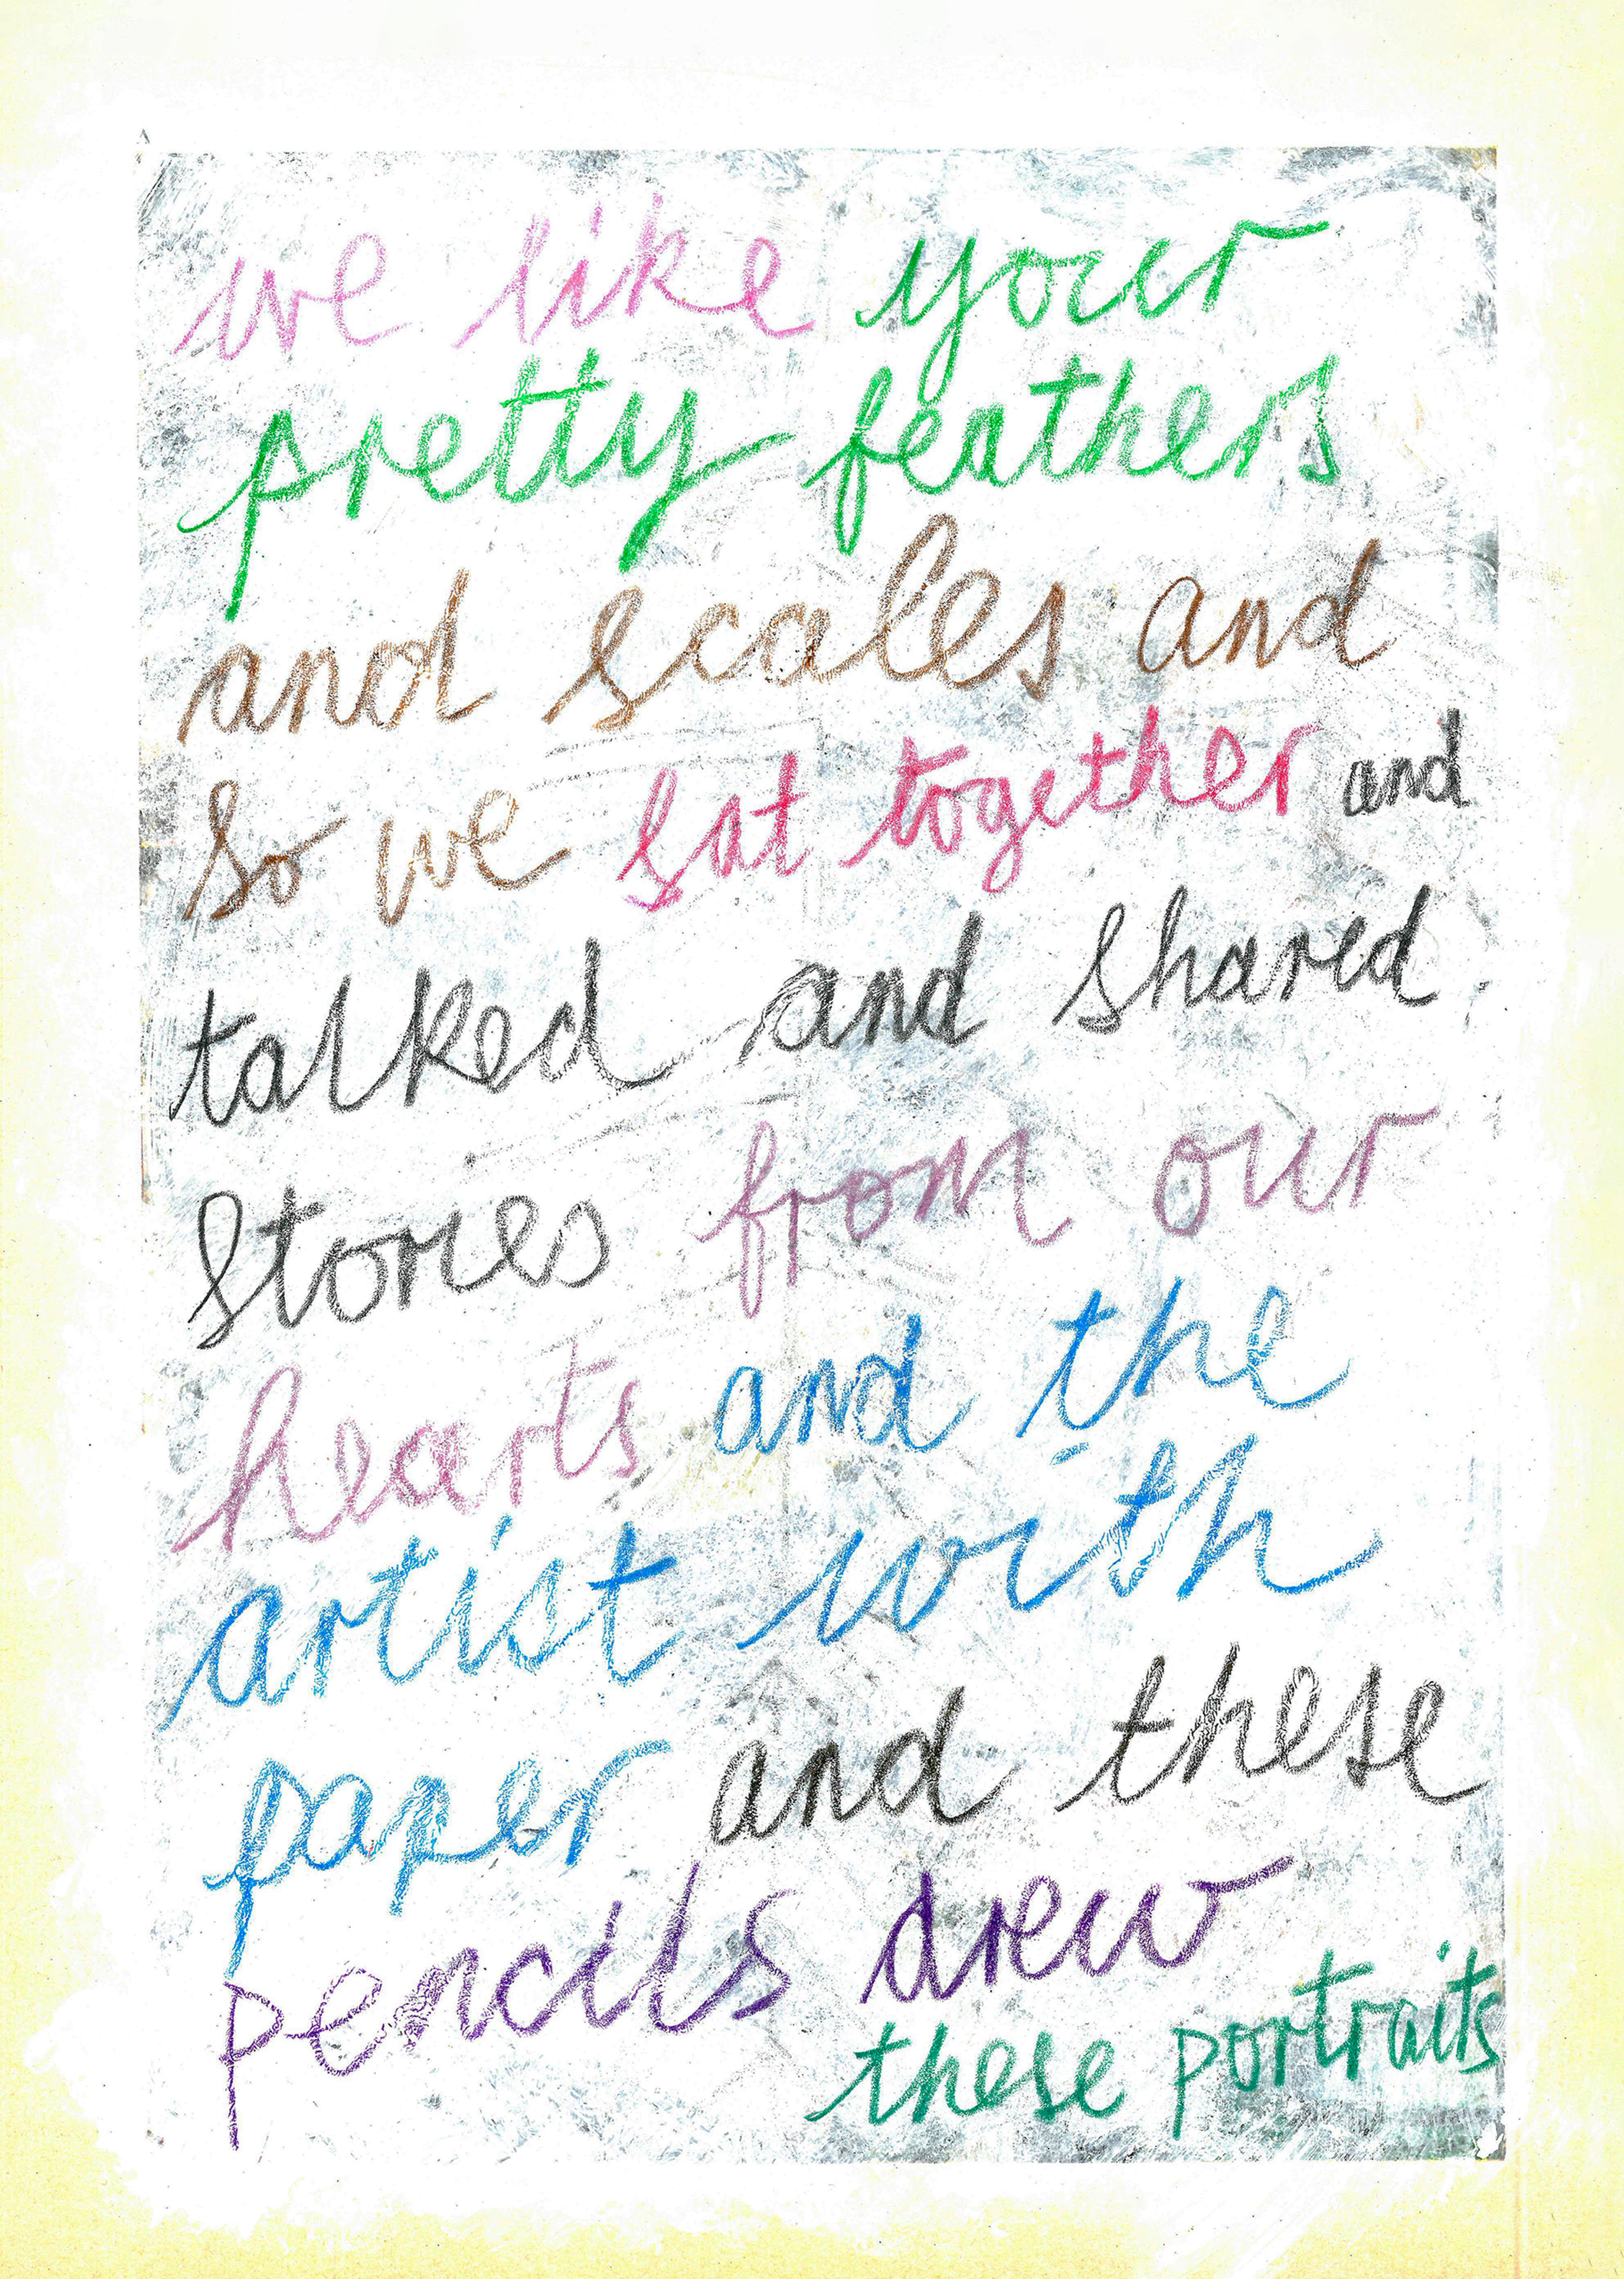 we like your
pretty feathers
and scales and
so we sat together and
talked and shared
stories from our
hearts and the
artist with
paper and these
pencils drew
these portraits